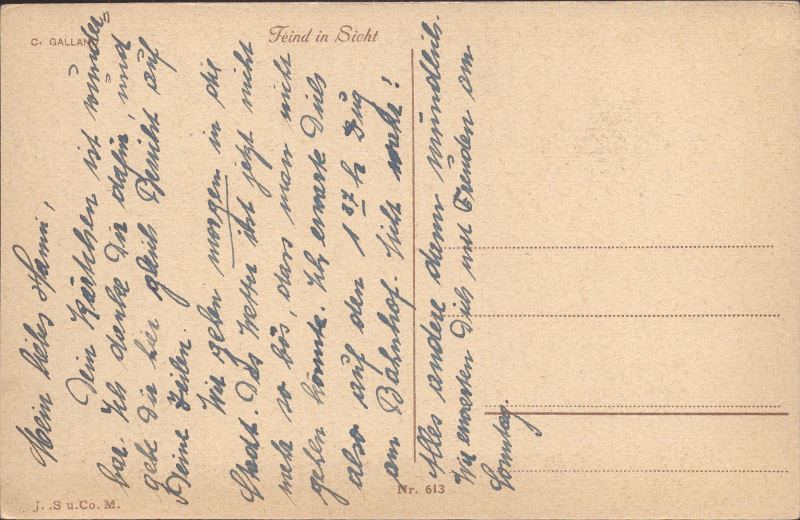 C. GALLAND
Feind in Sicht
Mein liebes Hanni,
Dein Kärtchen ist wunder-
bar. Ich danke Dir dafür und
gebe Dir hier gleich Bericht auf
Deine Zeilen.
Wir gehen morgen in die
Stadt. Das Wetter ist jetzt nicht
mehr so bös, dass man nicht
gehen könnte. Ich erwarte Dich
also auf den 1 37 h Zug
am Bahnhof. Nicht wahr!
Alles andere dann mündlich.
Wir erwarten Dich mit Freuden am
Sonntag.
J. .S u. Co. M.
Nr. 613